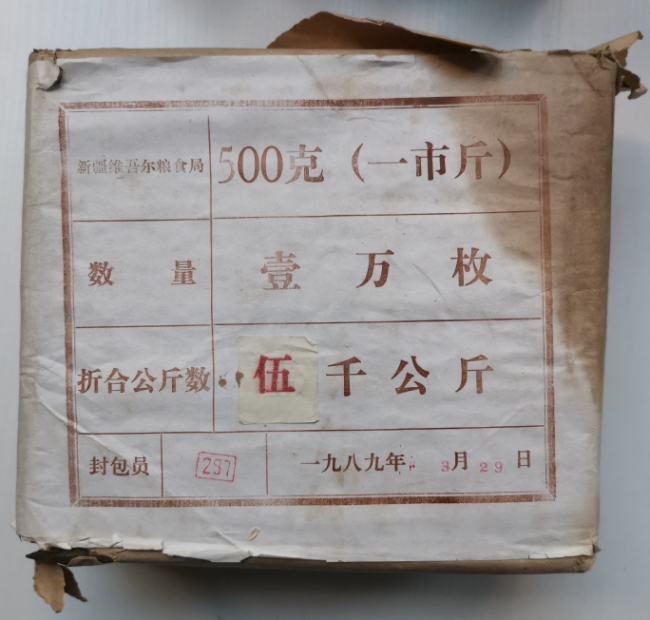 新疆维吾尔粮食局 500克（一市斤）
数量 壹万枚
折合公斤数 伍千公斤
封包员 297 一九八九年 3月29日